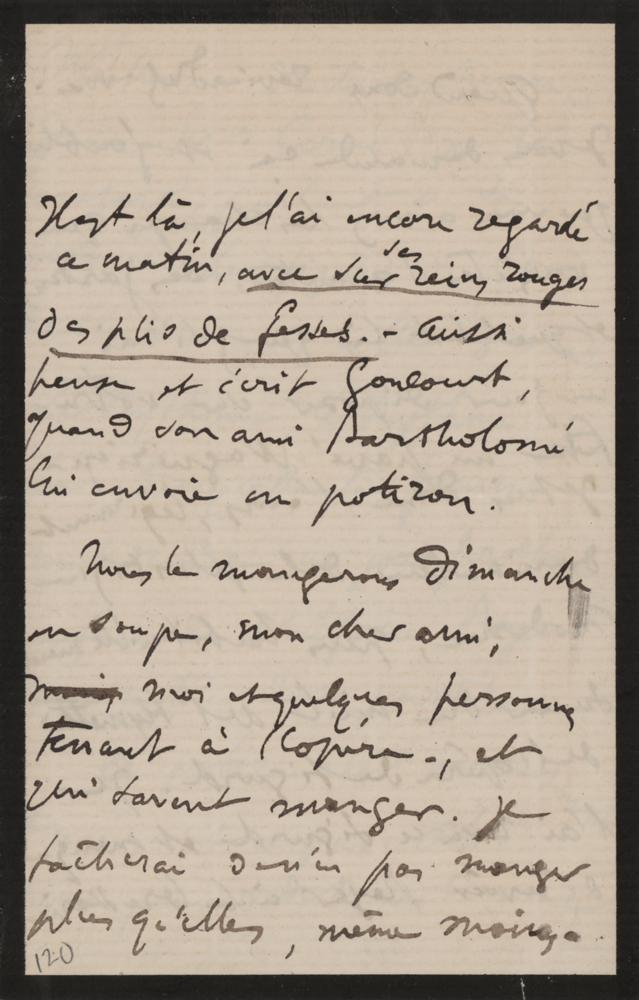 Il est là, je l'ai encore regardé
ce matin, avec ses reins rouges
des plis de fesses. - Aussi
pense et écrit Goncourt,
quand son ami Bartholomé
lui envoie un potiron.
Nous le mangerons Dimanche
en soupe, mon cher ami,
mais moi et quelques personnes
tenant à l'opéra -, et
qui savent manger. Je
tâcherai de n'en pas manger
plus qu'elles, même moins.
120